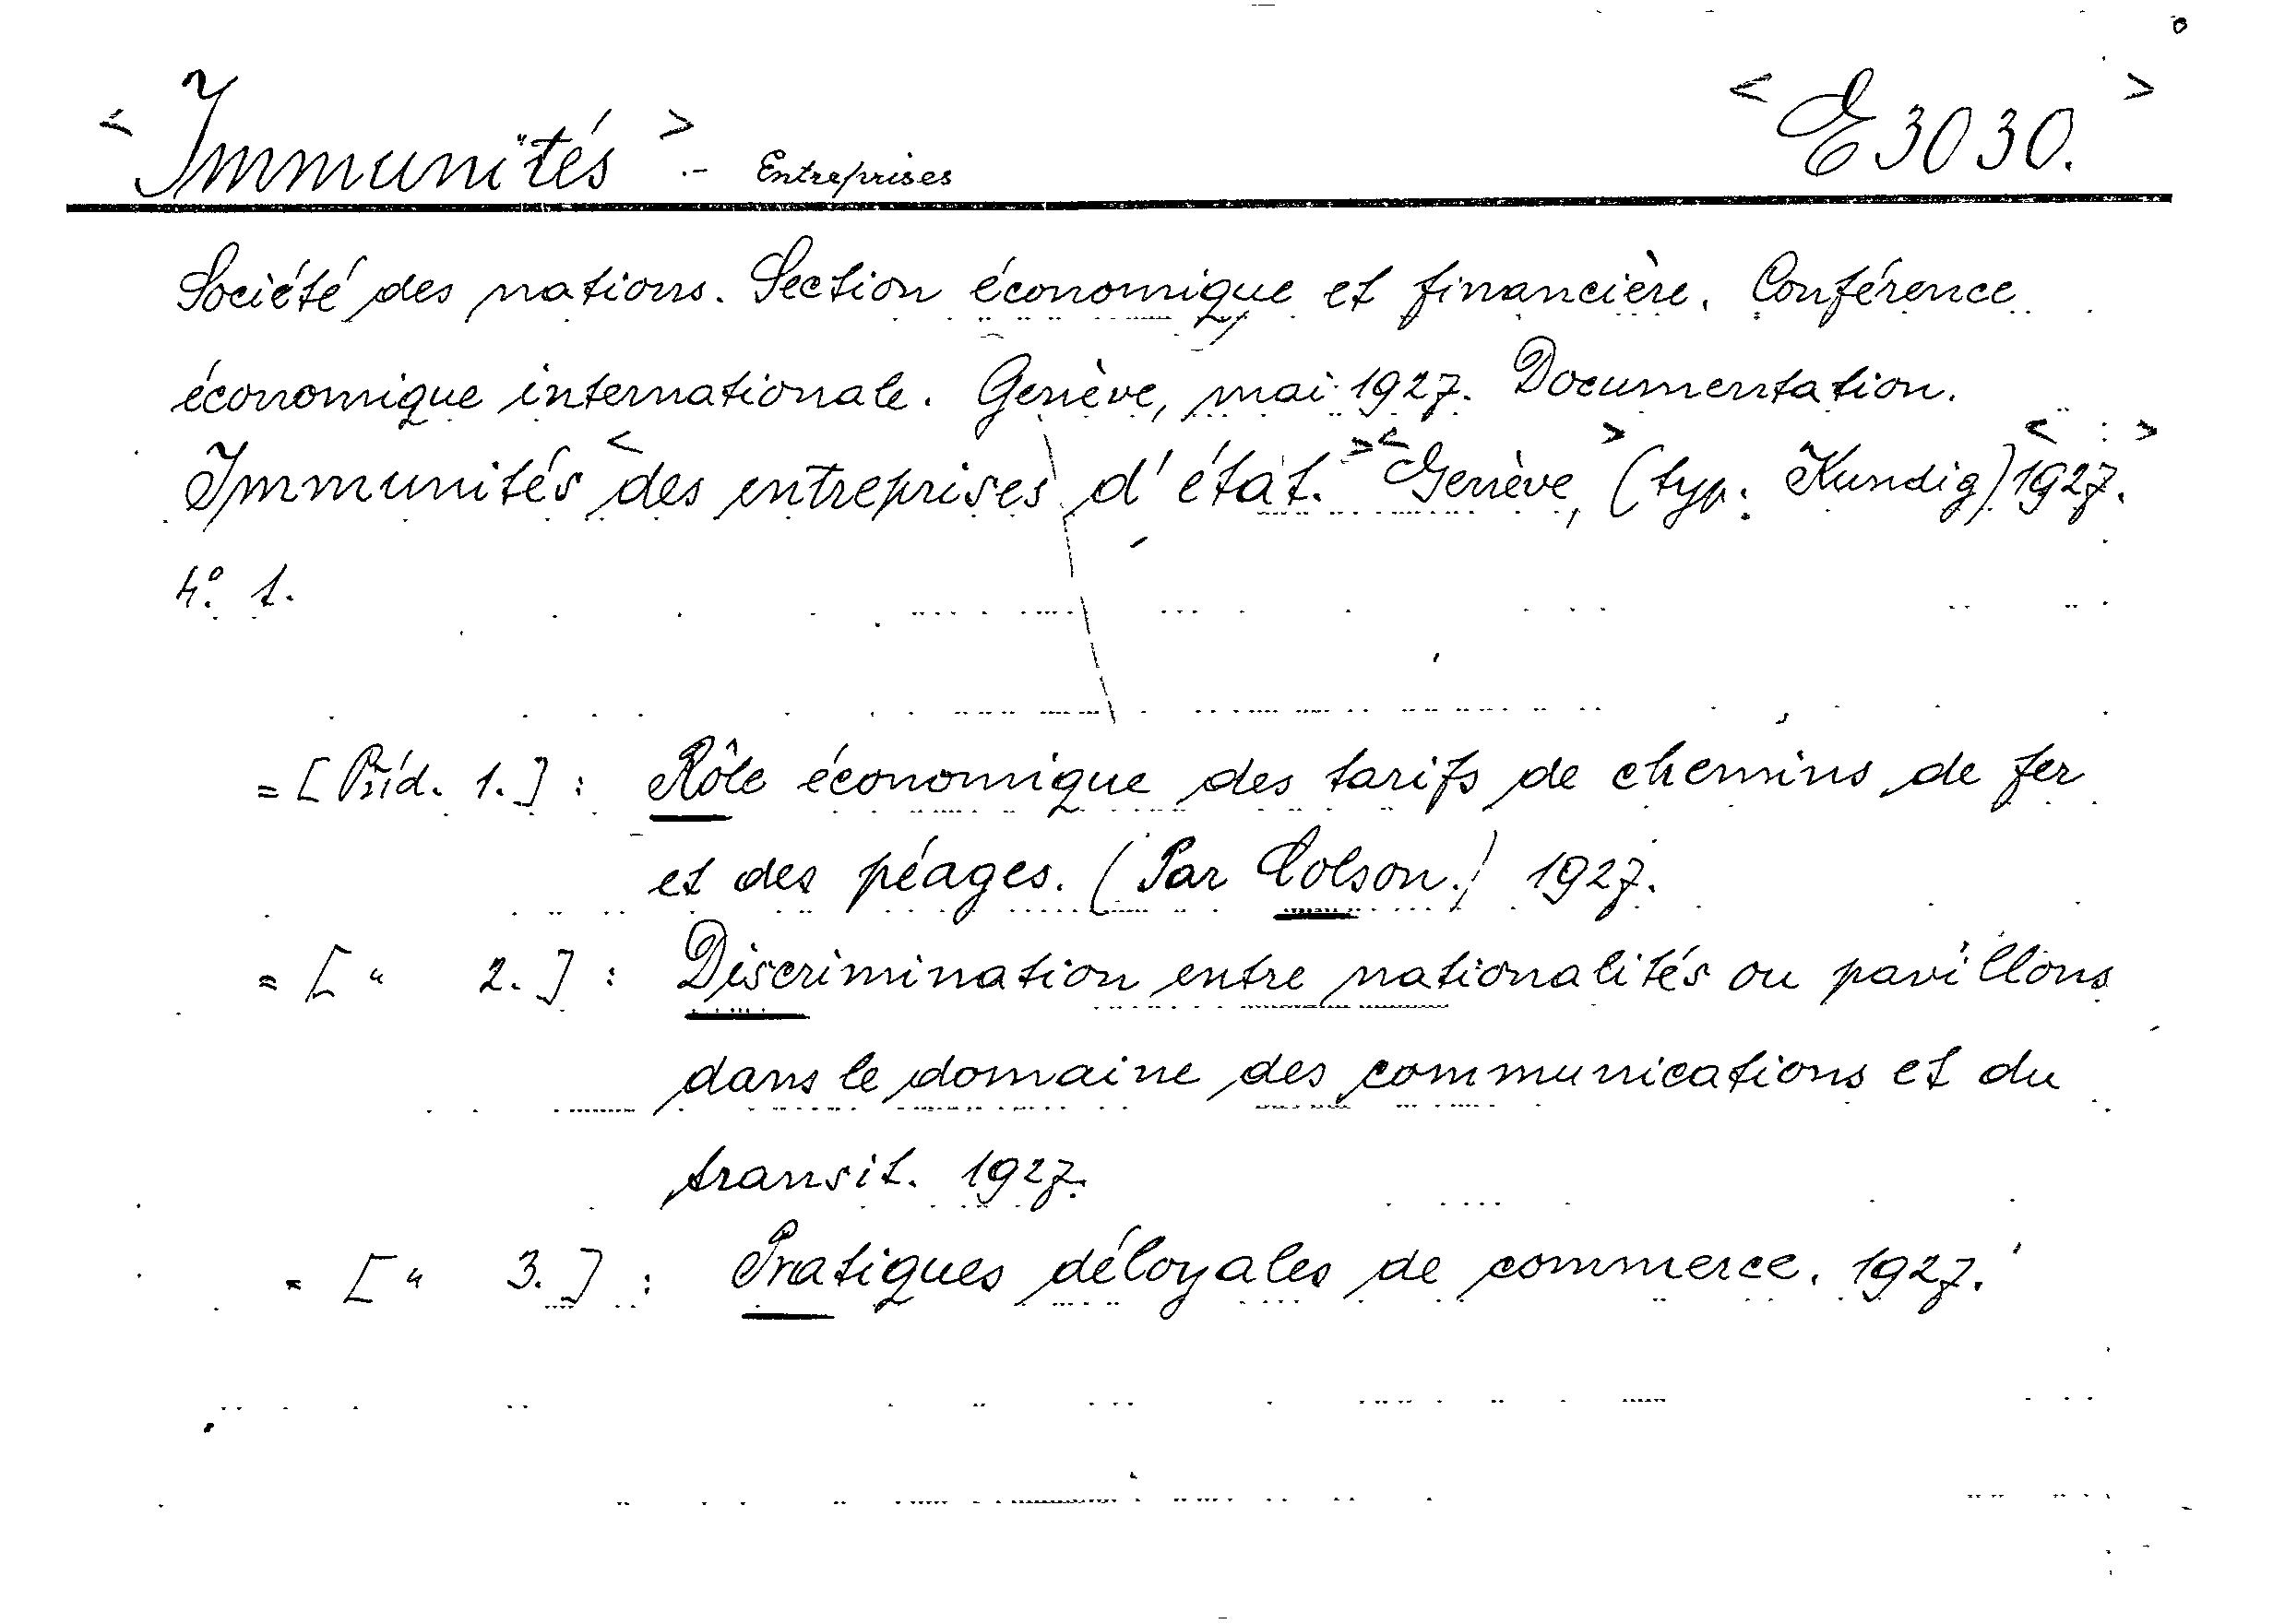 < Immunités > .- Entreprises < E 3030. >
Société des nations. Section économique et financière. Conférence
économique internationale. Genève, mai 1927. Documentation.
Immunités < des entreprises d'état. > < Genève, > (typ. Kundig) < 1927. >
4°. 1.
= [Příd. 1.] : Rôle économique des tarifs de chemins de fer
et des péages. (Par Colson.) 1927.
= [ " 2.] : Discrimination entre nationalités ou pavillons
dans le domaine des communications et du
transit. 1927.
= [ " 3.] : Pratiques déloyales de commerce. 1927.